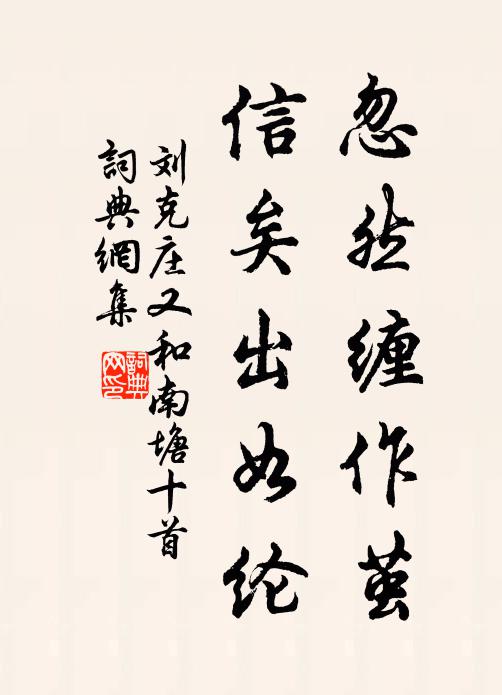 忽然缠作茧
信矣出如纶
刘克庄又和南塘十首
詞典網集
詞典网印